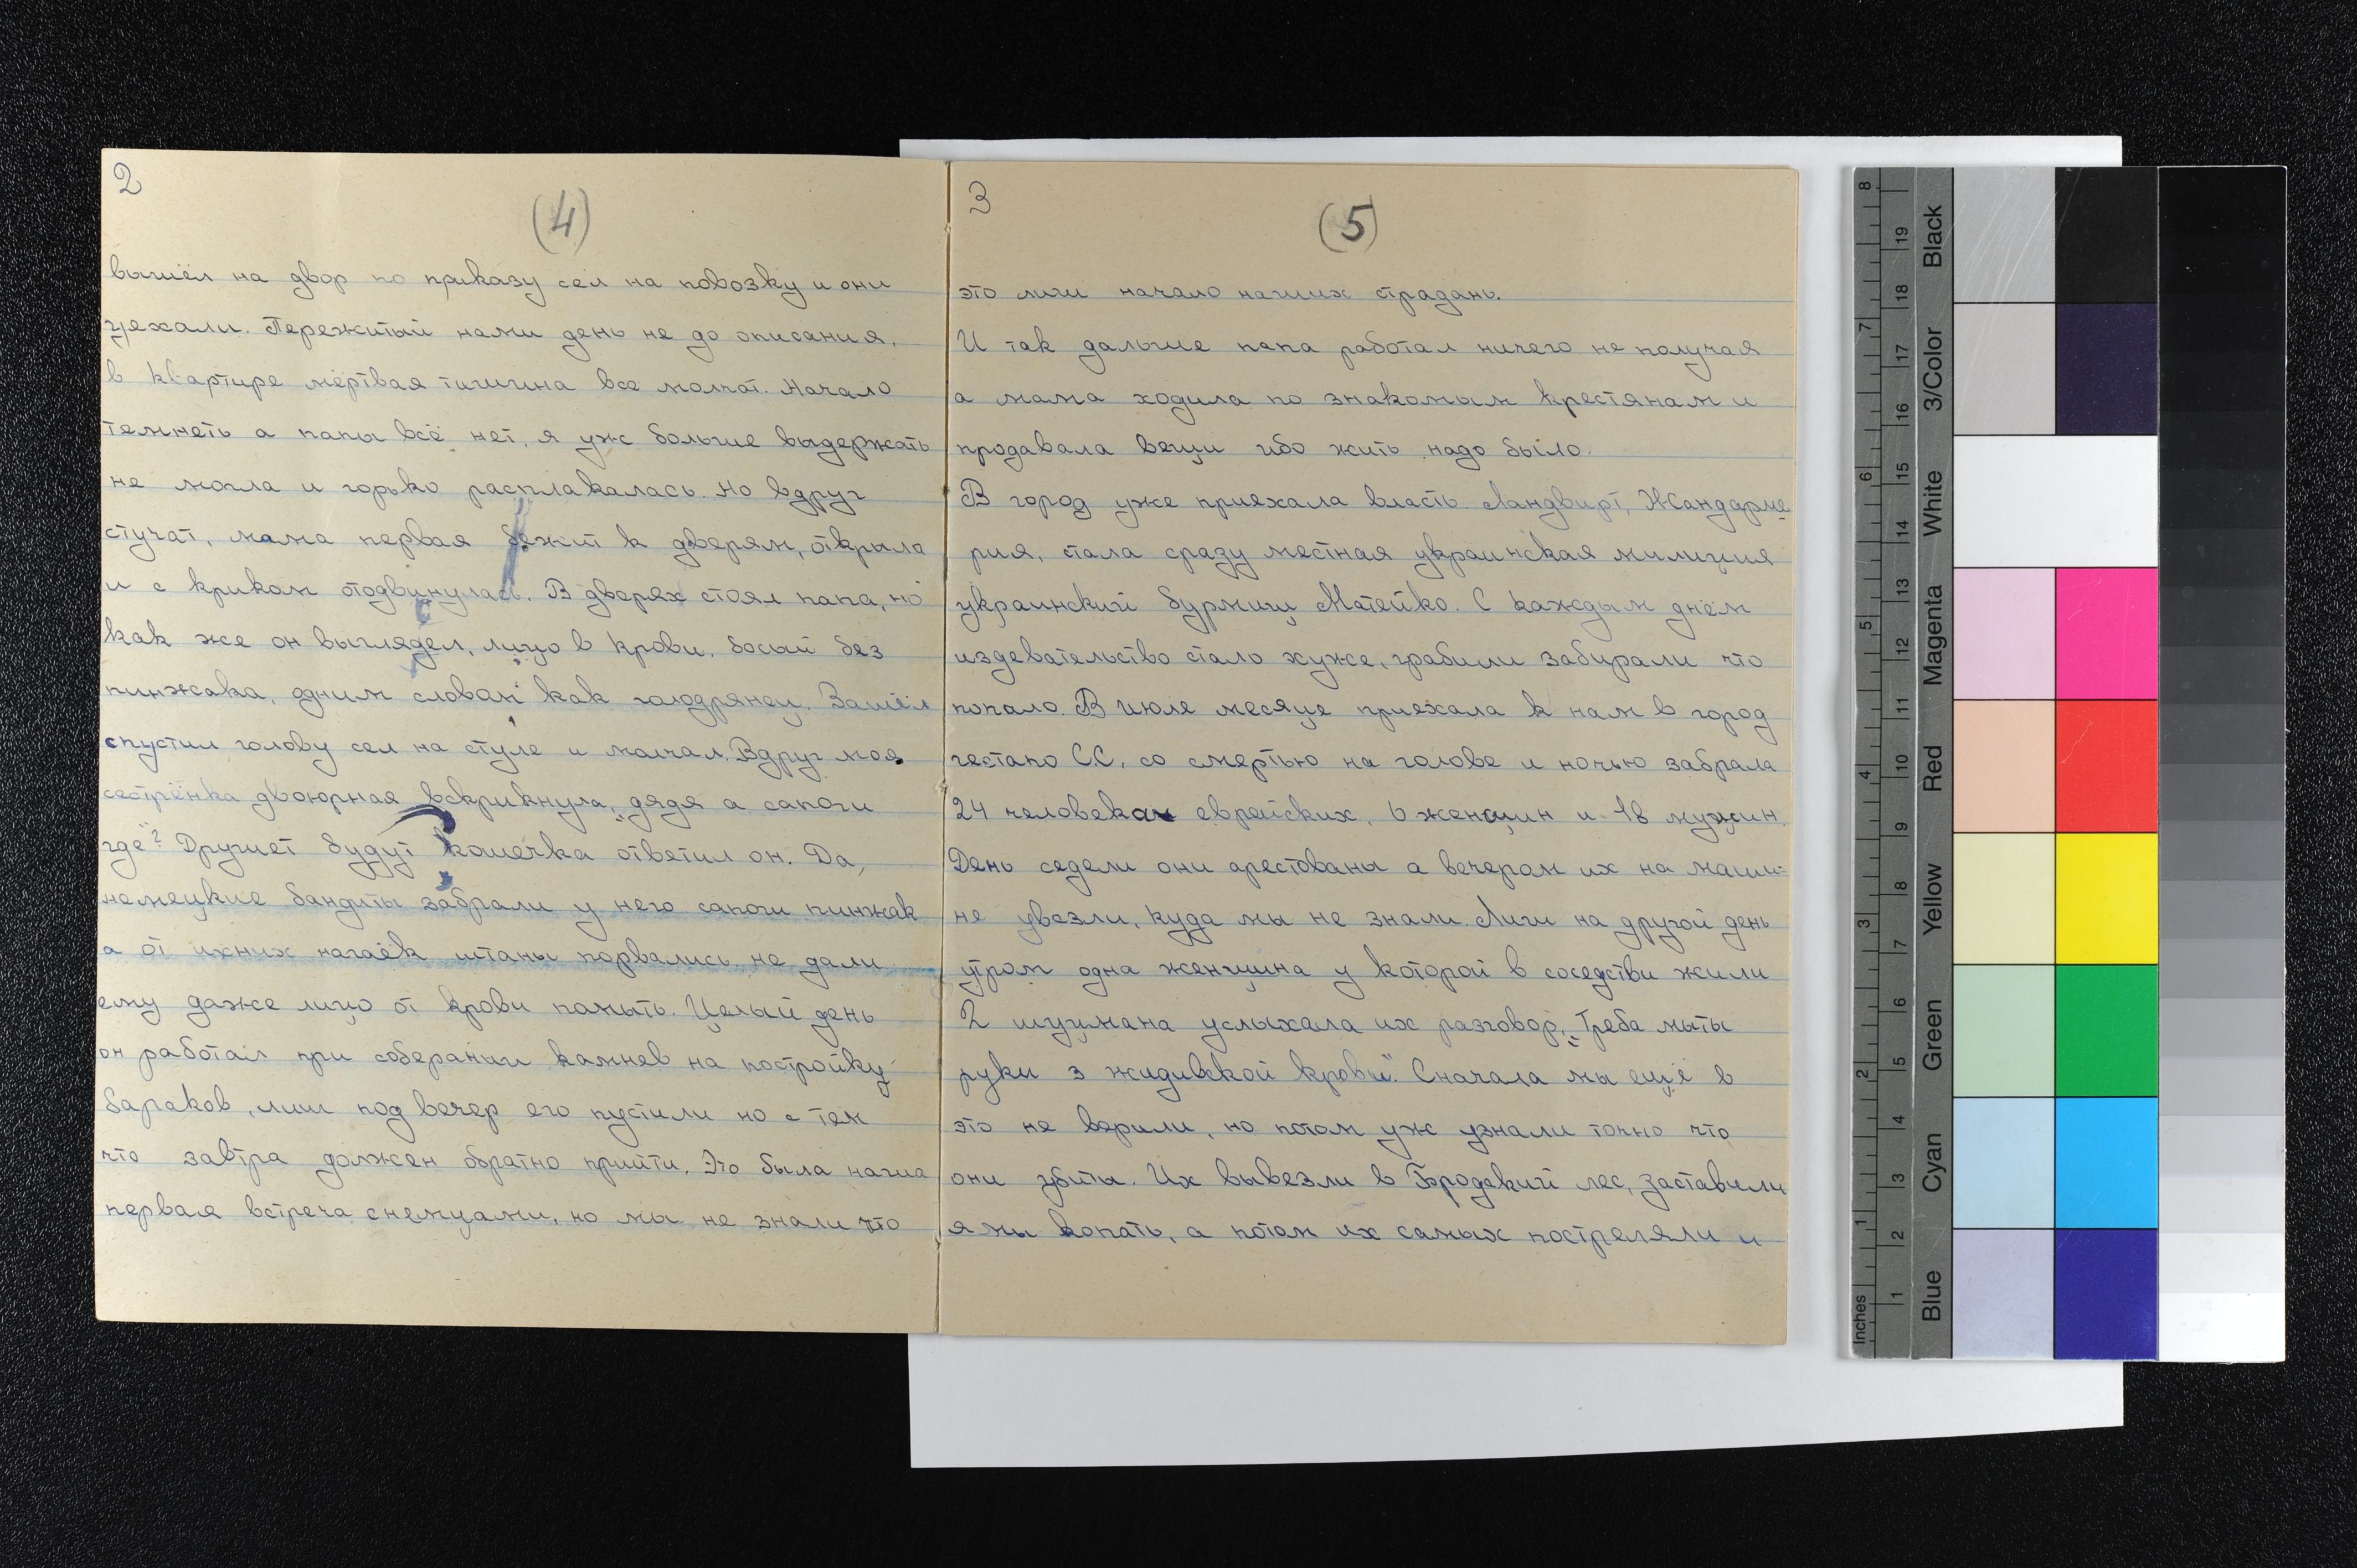 2
(4)
вышел на двор по приказу сел на повозку и они
уехали. Пережитый нами день не до описания,
в квартире мёртвая тишина все молчат. Начало
темнеть а папы всё нет, я уж больше выдержать
не могла и горько расплакалась. Но вдруг
стучат, мама первая бежит к дверям, открыла
и с криком отодвинулась. В дверях стоял папа, но
как же он выглядел, лицо в крови, босый без
пинжака, одним словам как голодрянец. Зашёл
спустил голову сел на стуле и молчал. Вдруг моя
сестрёнка двоюрная вскрикнула, „дядя а сапоги
где"? Другиет будут кошечка ответил он. Да,
немецкие бандиты забрали у него сапоги пинжак
а от ихних нагаёк штаны порвались не дали
ему даже лицо от крови памыть. Целый день
он работал при соберании камнев на постройку
бараков, лиш под вечер его пустили но с тем
что завтра должен обратно прийти. Это была наша
первая встреча с немцами, но мы не знали что
3
(5)
это лиш начало наших страдань.
И так дальше папа работал ничего не получая
а мама ходила по знакомым крестянам и
продавала вещи ибо жить надо было.
В город уже приехала власть Ландвирт, Жандарме
рия, стала сразу местная украинская милиция
украинский бурмиш Матейко. С каждым днём
издевательство стало хуже, грабили забирали что
попало. В июле месяце приехала к нам в город
гестапо С.С. со смертью на голове и ночью забрала
24 человекам еврейских, 6 женщин и 18 мужчин.
День седели они арестованы а вечером их на маши-
не увезли, куда мы не знали. Лиш на другой день
утром одна женщина у которой в соседстви жили
2 шуцмана услыхала их разговор, „Треба мыты
руки з жидивской крови". Сначала мы ещё в
это не верили, но потом уж узнали точно что
они убиты. Их вывезли в Бродский лес, заставили
ямы копать, а потом их самых постреляли и
Inches
1
2
3
4
5
6
7
8
1
2
3
4
5
6
7
8
9
10
11
12
13
14
15
16
17
18
19
Blue
Cyan
Green
Yellow
Red
Magenta
White
3/Color
Black